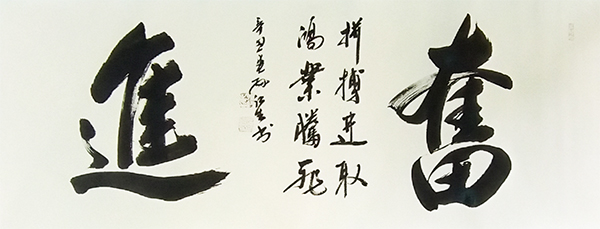 奮
拼搏進取
鴻業騰飛
書
進